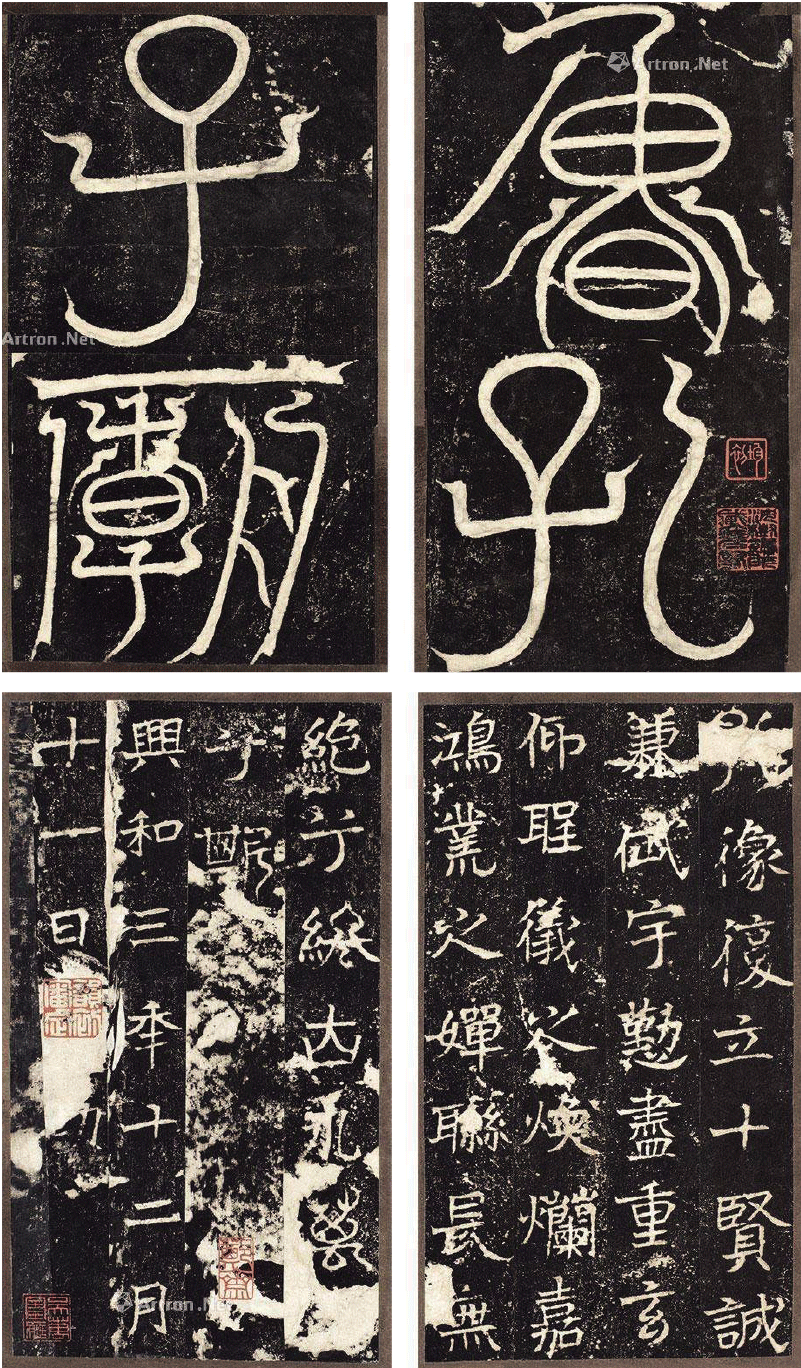 魯孔
子廟
像復立十賢誠
兼岱宇勤盡重玄
仰聖儀之煥爛嘉
鴻業之嬋聯長無
絕兮終古永萬
興和三年十二月
十一日
Artron.Net
Artron.Net
Artron.Net